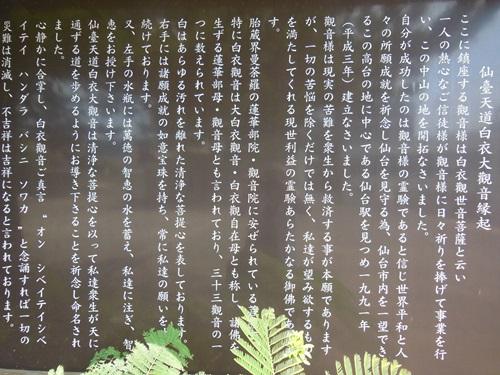 仙臺天道白衣大観音縁起
ここに鎮座する観音様は白衣観世音菩薩と云い
一人の熱心なご信者様が観音様に日々祈りを捧げて事業を行
い、この中山の地を開拓なさいました。
自分が成功したのは観音様の霊験であると信じ世界平和と人
々の所願成就を祈念し仙台を見守る為、仙台市内を一望でき
るこの高台の地に中心である仙台駅を見つめ一九九一年
（平成三年）建立なさいました。
観音様は現実の苦難を衆生から救済する事が本願であります
が、一切の苦悩を除くだけでは無く、私達が望み欲するも
を満たしてくれる現世利益の霊験あらたかなる御佛であ
胎蔵界曼荼羅の蓮華部院・観音院に安祀されている
特に白衣観音は大白衣観音・白衣観自在母とも称し、諸佛を
生ずる蓮華部母・観音母とも言われており、三十三観音の一
つに数えられています。
白はあらゆる汚れを離れた清浄な菩提心を表しております。
右手には諸願成就の如意宝珠を持ち、常に私達の願いを
続けております。
又、左手の水瓶には萬徳の智恵の水を蓄え、私達に注ぎ、智
恵をお授け下さいます。
仙臺天道白衣大観音は清浄な菩提心を以って私達衆生が天に
通ずる道を歩めるようにお導き下さることを祈念し命名され
ました。
心静かに合掌し、白衣観音ご真言 〝オン シベイテイシベ
イテイ ハンダラ バシニ ソワカ〟と念誦すれば一切の
災難は消滅し、不吉祥は吉祥になると言われております。